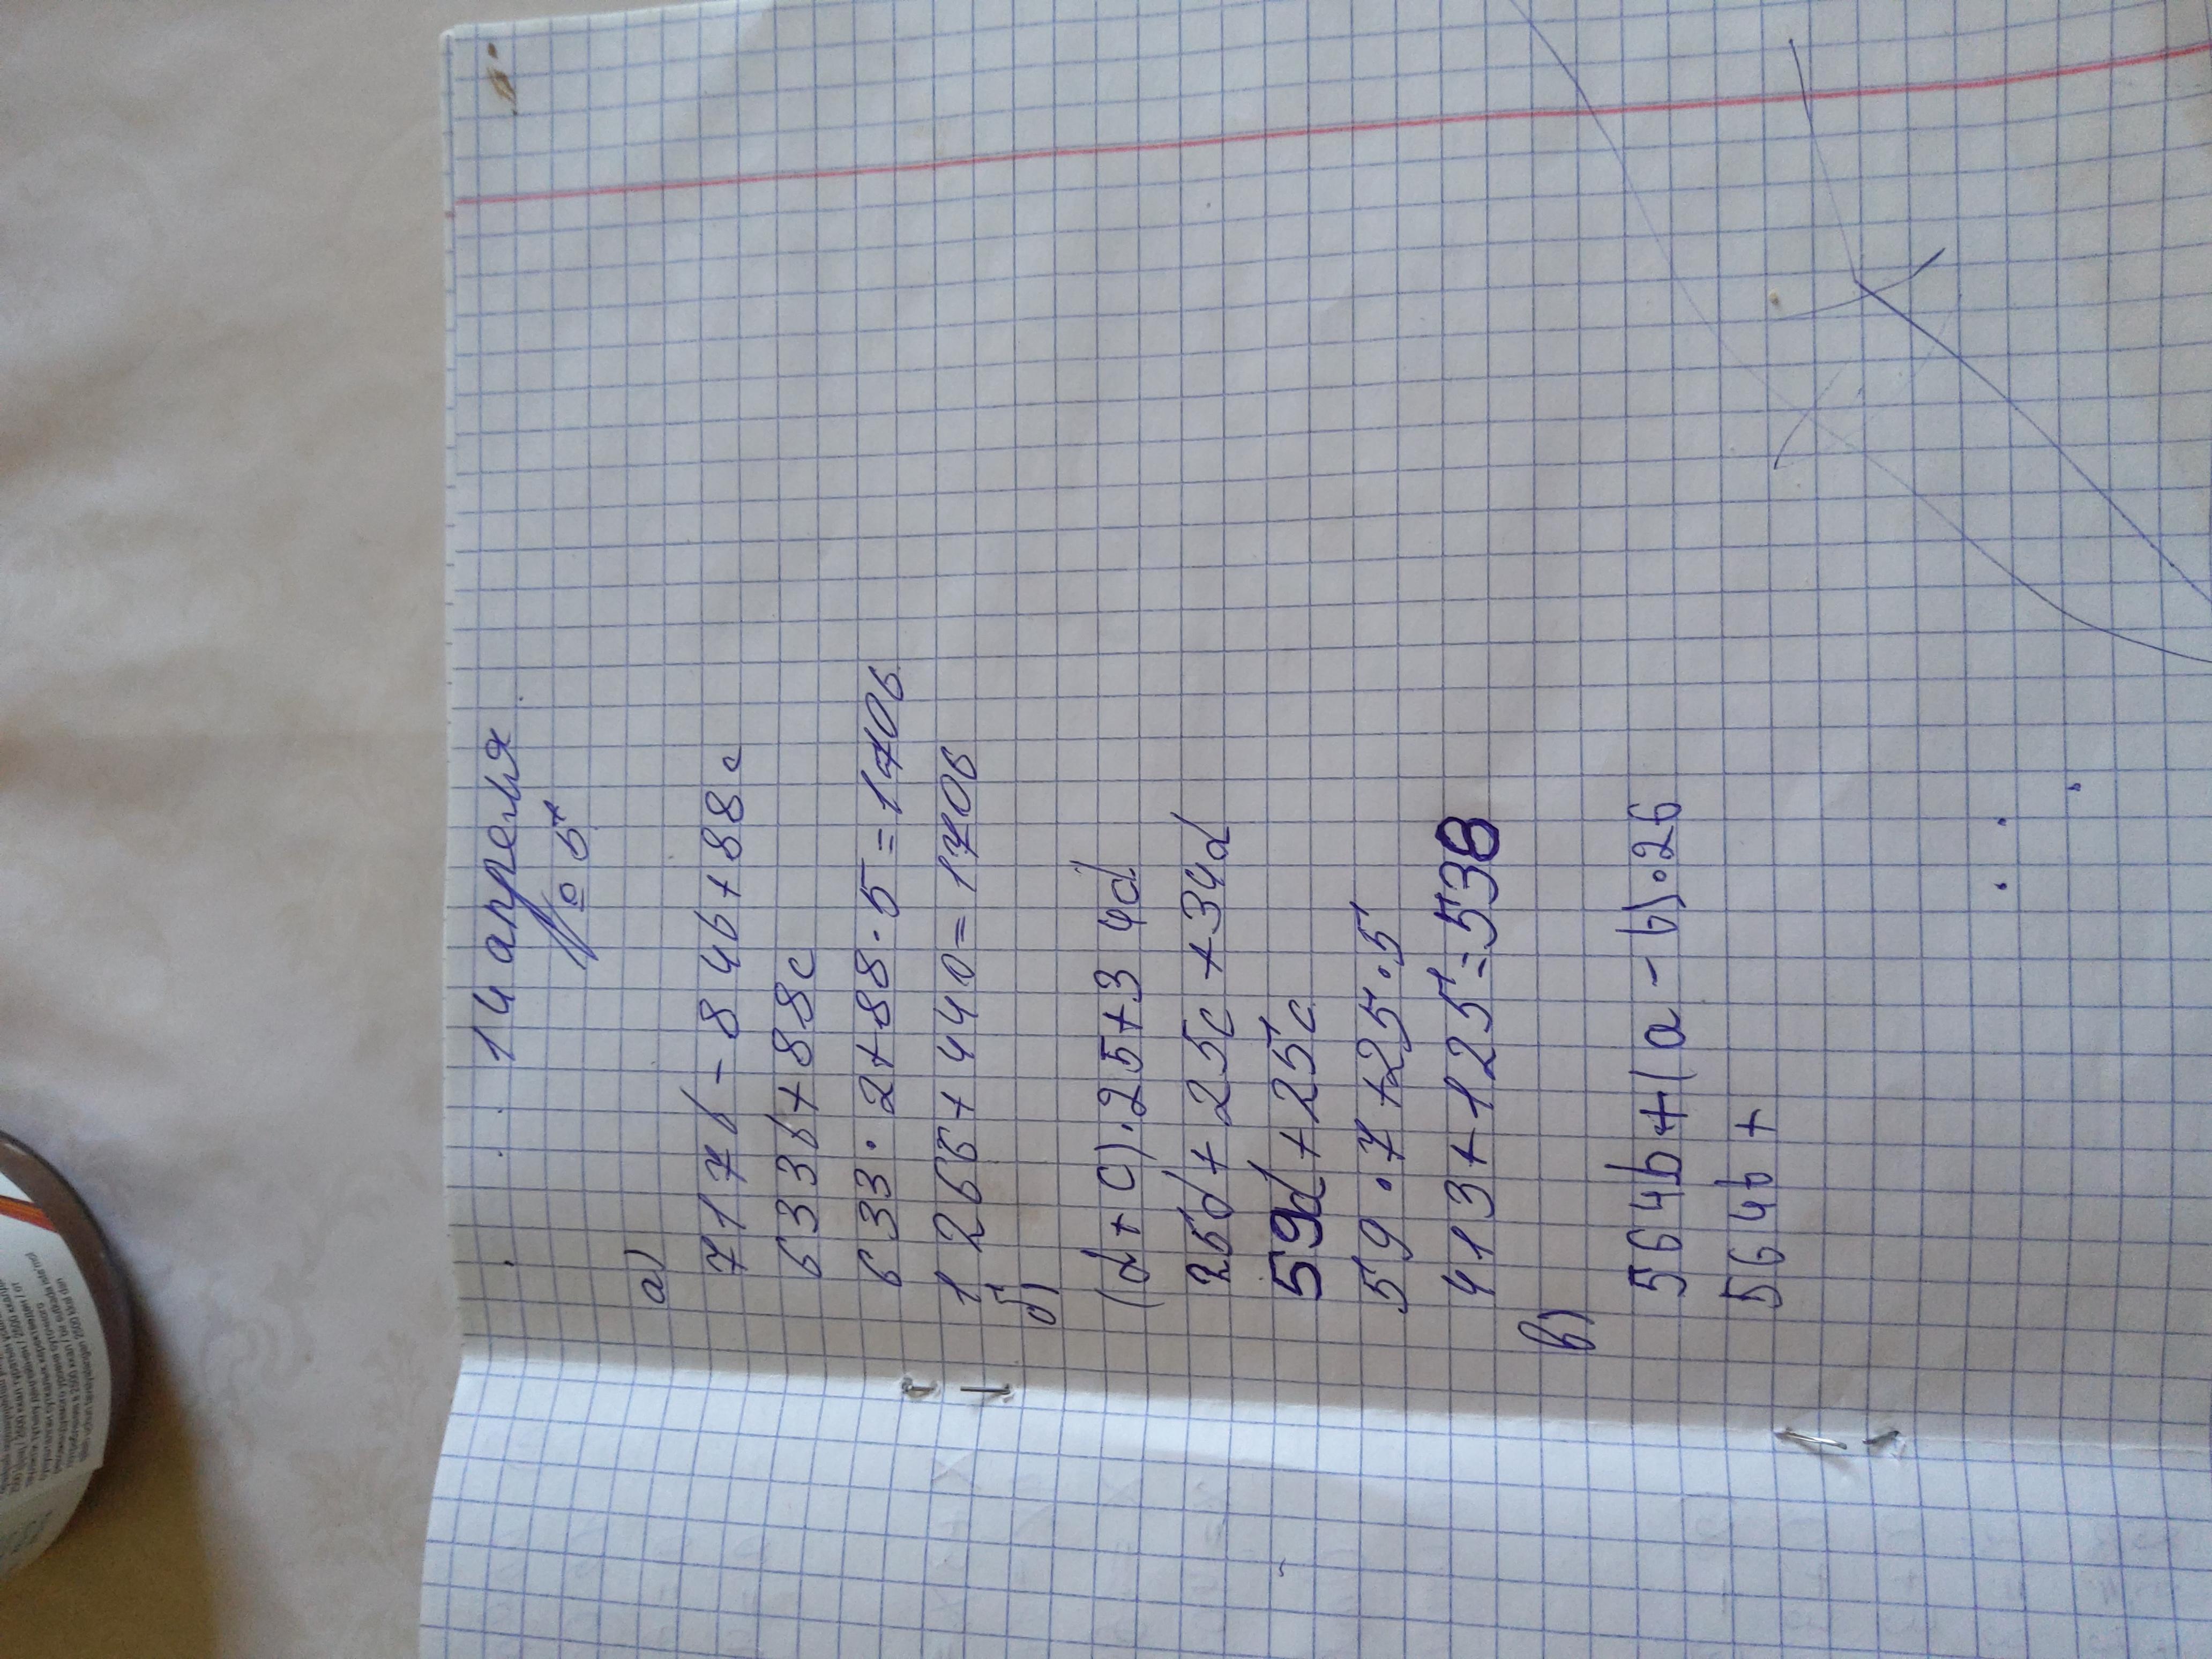 14 апреля
№ 5
а)
717b-84b+88c
633b+88c
633·2+88·5=1706
1266+440=1706
б)
(d+c)·25+34d
25d+25c+34d
59d+25c
59·7+25·5
413+125=538
в)
564b+(a-b)·26
564b+